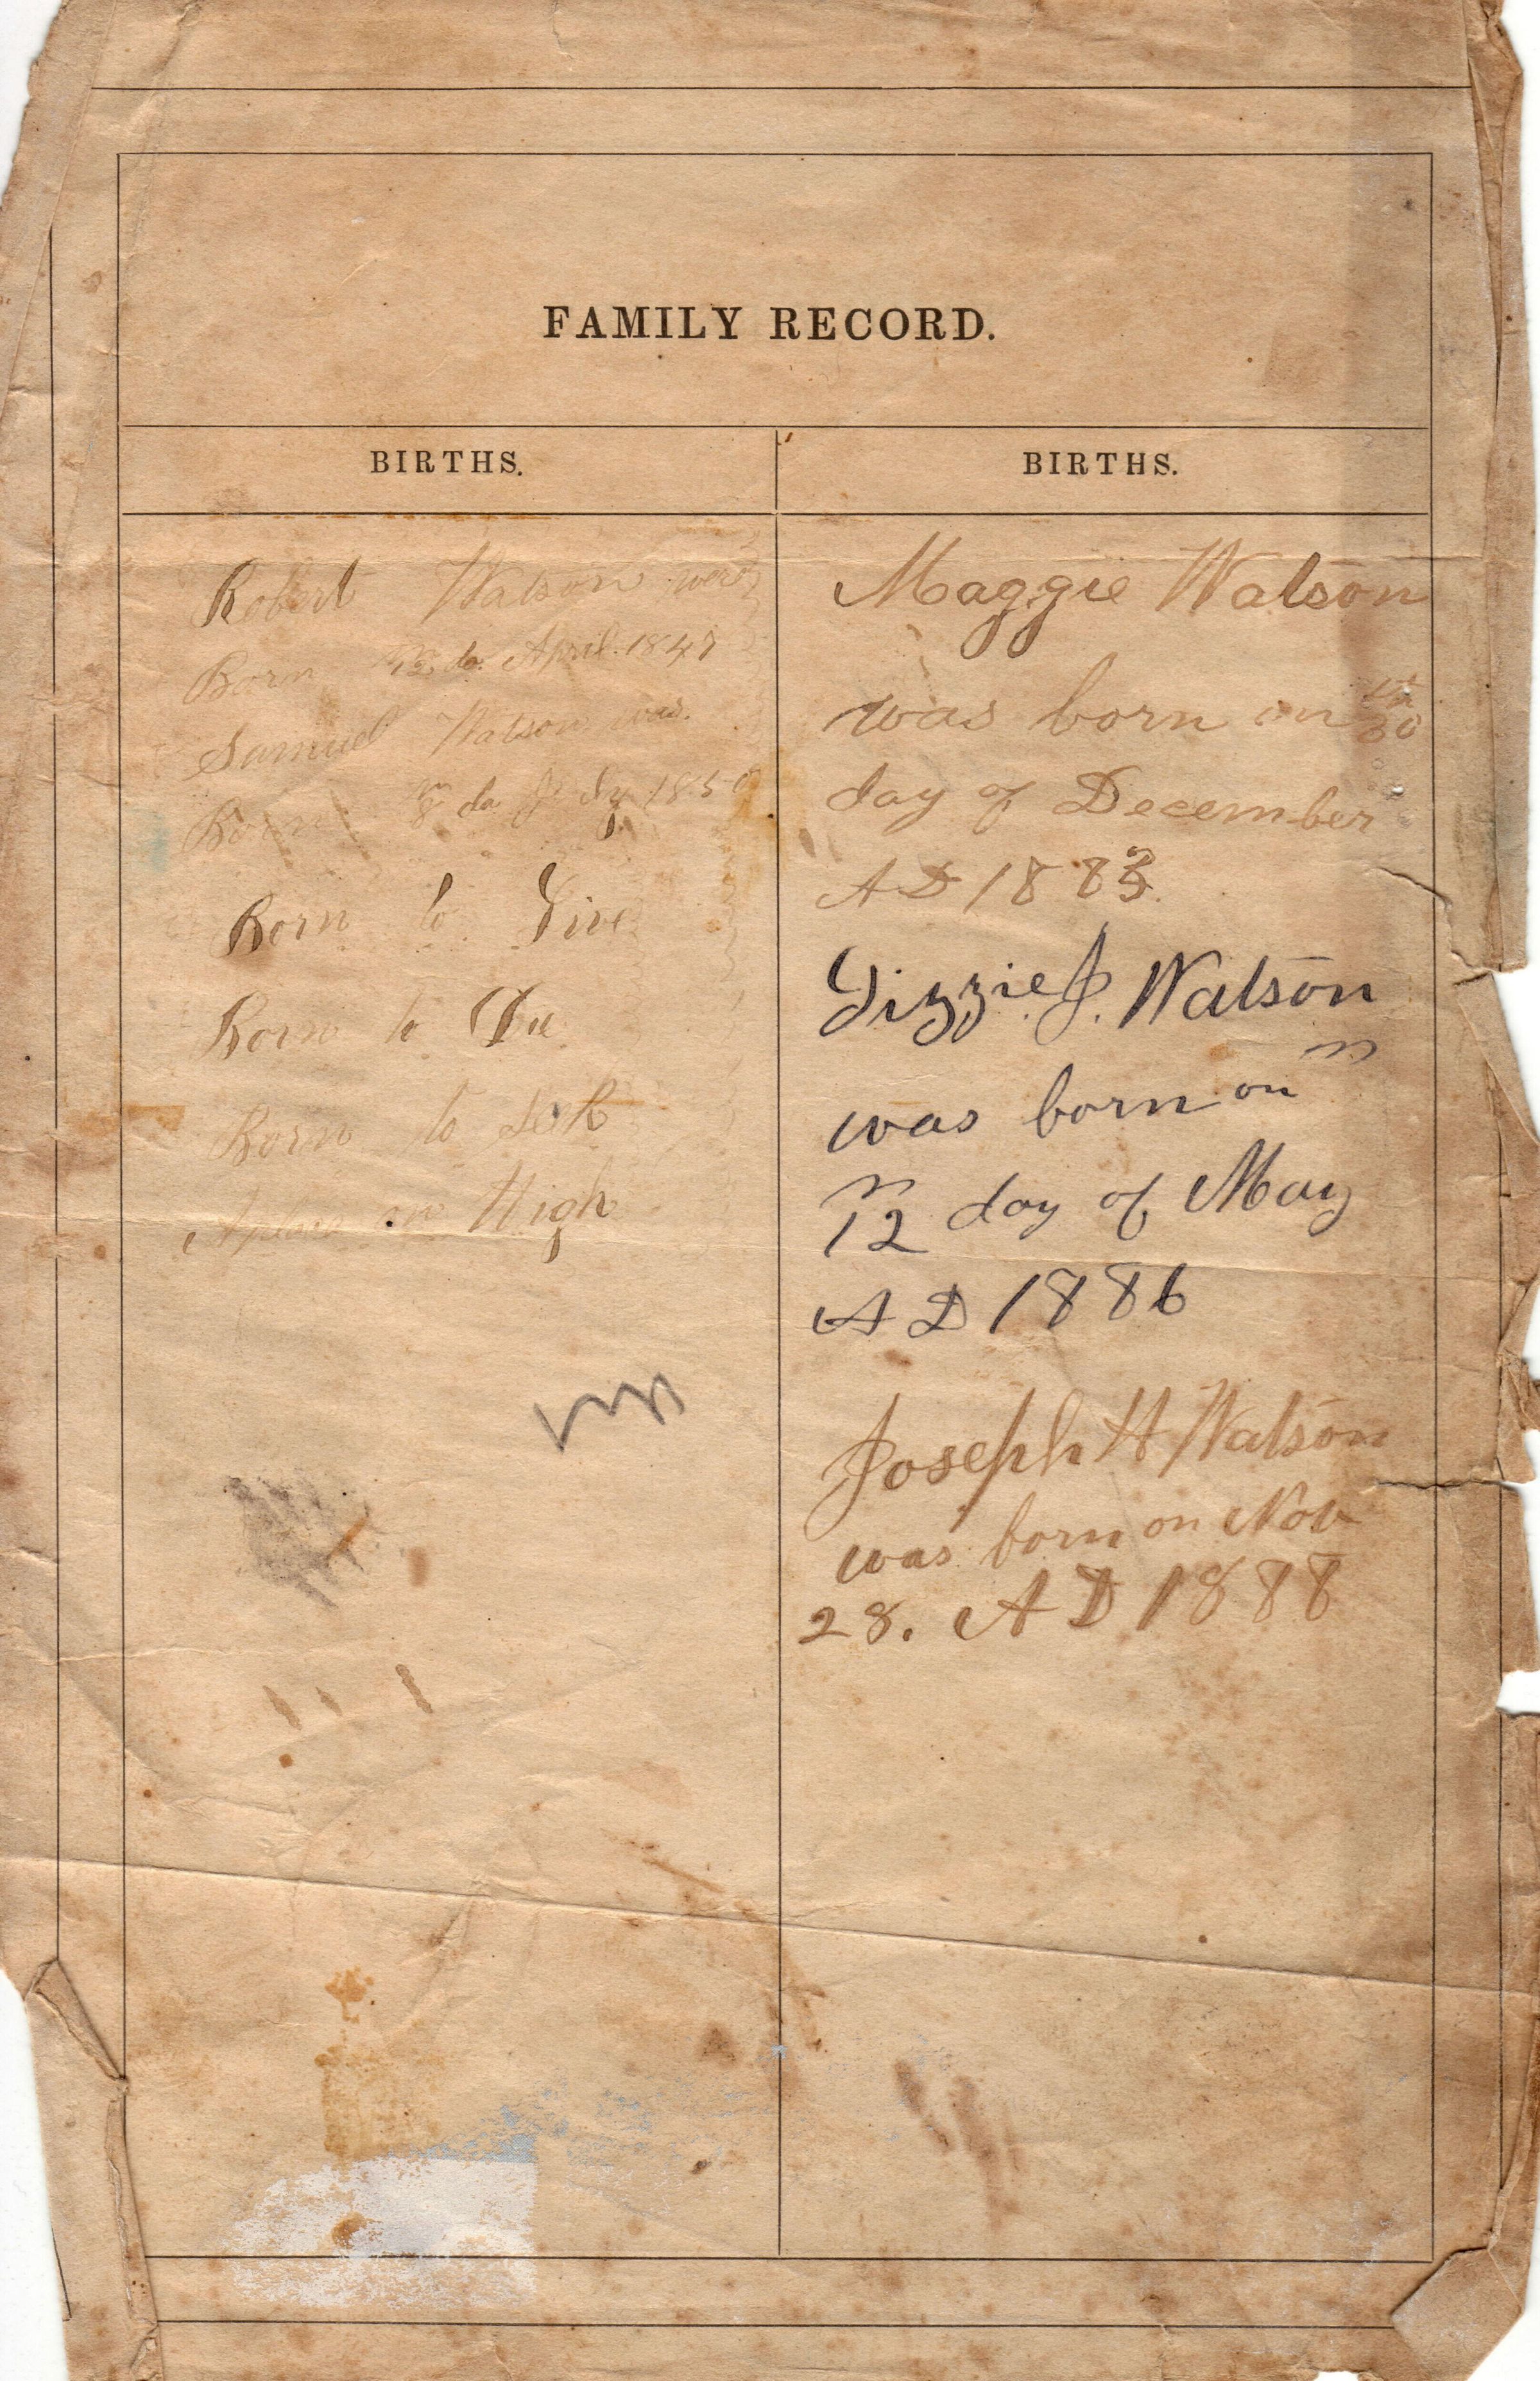 FAMILY RECORD.
BIRTHS.
Robert Watson was
Born 12 da April 1847
Samuel Watson was.
Born 8 da July 1850
Born to Live
Born to Die
Born to
on High
BIRTHS.
Maggie Watson
was born on 30
day of December
AD 1883.
Lizzie J. Watson
was born on
12 day of May
AD 1886
Joseph H Watson
was born on Nov
28. AD 1888